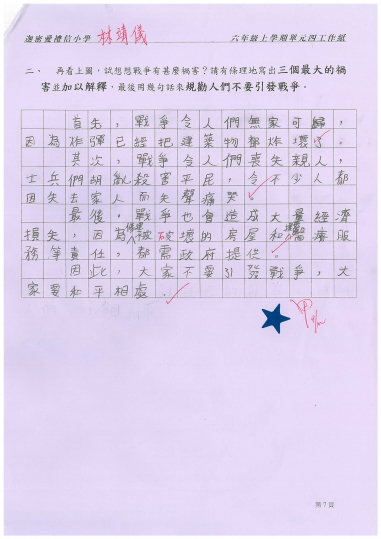 迦密愛禮信小學 林靖儀 六年級上學期單元四工作紙
二、 再看上圖,試想想戰爭有甚麼禍害?請有條理地寫出三個最大的禍
害並加以解釋,最後用幾句話來規勸人們不要引發戰爭。
首先,戰爭令人們無家可歸,
因為炸彈已經把建築物都炸壞了。
其次,戰爭令人們喪失親人,
士兵們胡亂殺害平民,令不少人都
因失去家人而失聲痛哭。
最後,戰爭也會造成大量經濟
損失,因為被破壞的房屋和醫療服
務等責任,都需政府提供。
因此,大家不要引發戰爭,大
家要和平相處。
甲
第7頁